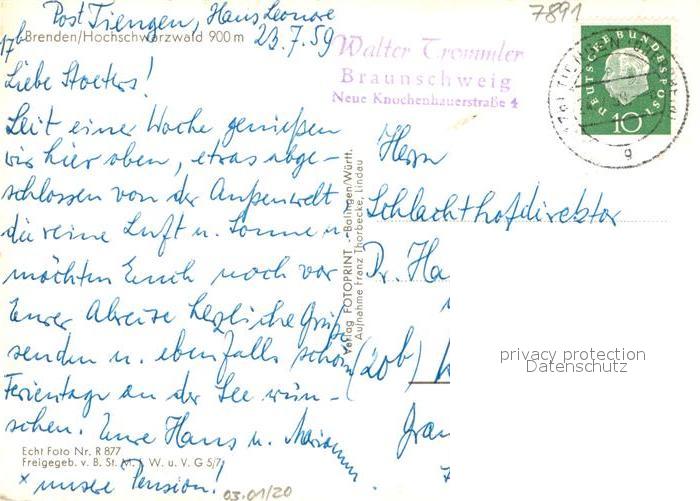 Post Tiengen, Haus Leonore
17b Brenden/Hochschwarzwald 900 m
23.7.59
Liebe Stoeters!
Seit einer Woche genießen
wir hier oben, etwas abge-
schlossen von der Außenwelt
die reine Luft u. Sonne u.
möchten Euch noch vor
Eurer Abreise herzliche Grüße
senden u. ebenfalls schöne
Ferientage an der See wün-
schen. Eure Hans u. Mariann
Echt Foto Nr. R 877
Freigegeb. v. B. St. M. f. W. u. V. G 5/7
x unsere Pension!
03.01/20
Verlag FOTOPRINT - Balingen/Württ.
Aufnahme Franz Thorbecke, Lindau
Walter Trommler
Braunschweig
Neue Knochenhauerstraße 4
7891
DEUTSCHE BUNDESPOST
10
g
Herrn
Schlachthofdirektor
Dr. Ha
(20b)
privacy protection
Datenschutz